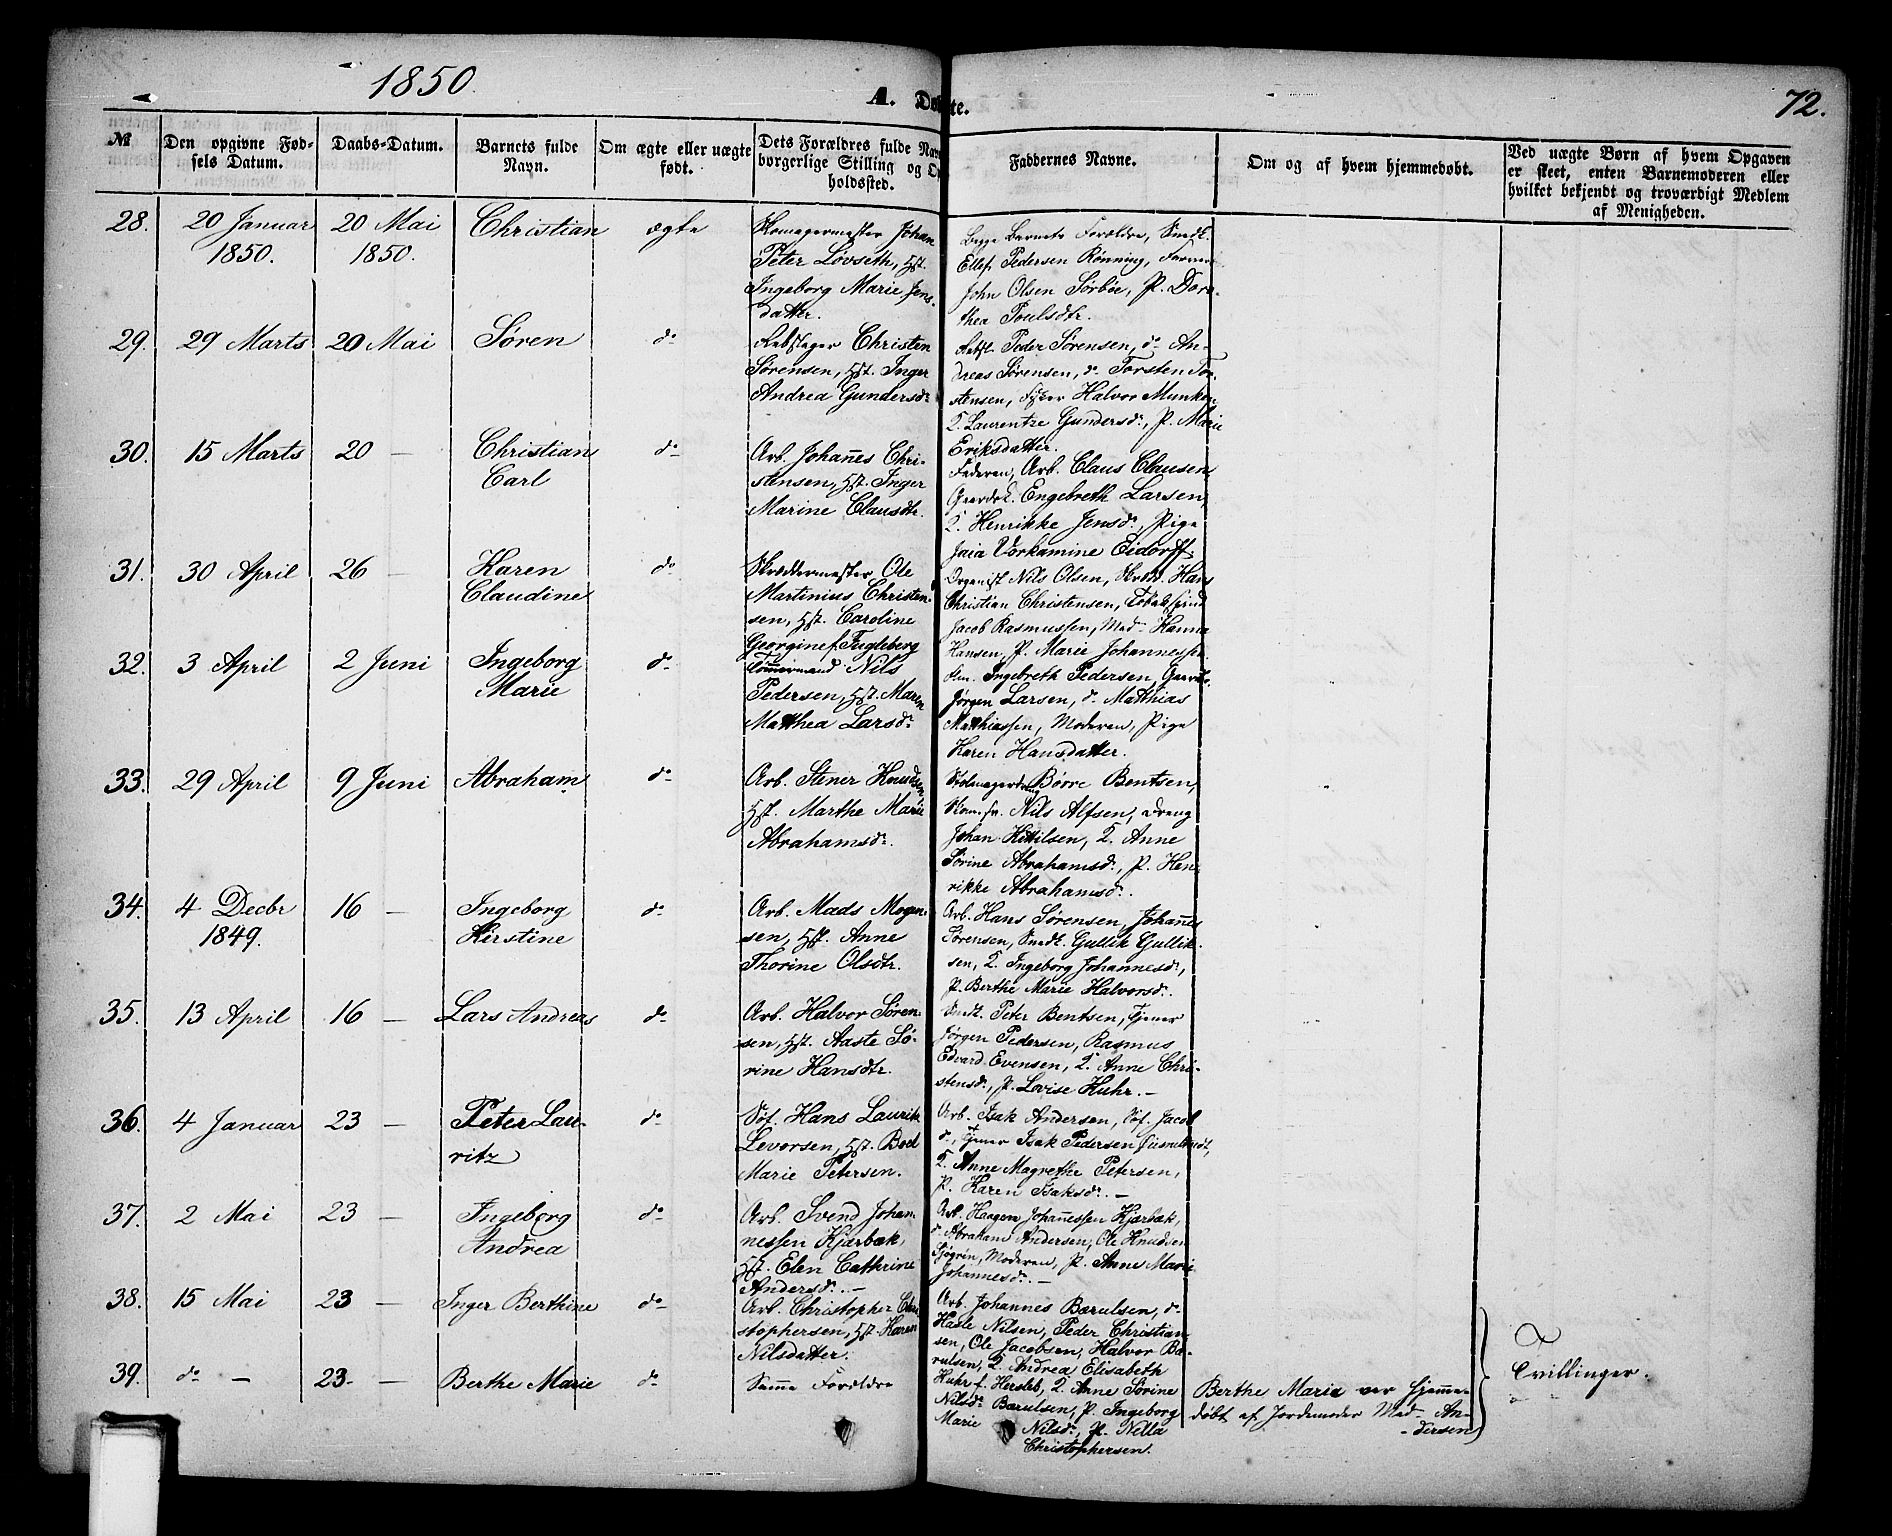 1850
A. Døbte.
72.
№
Den opgivne Fød-
sels Datum.
Daabs-Datum.
Barnets fulde
Navn.
Om ægte eller uægte
født.
Dets Forældres fulde Nav
borgerlige Stilling og O
holdssted.
Faddernes Navne.
Om og af hvem hjemmedøbt.
Ved uægte Børn af hvem Opgaven
er skeet, enten Barnemoderen eller
hvilket bekjendt og troværdigt Medlem
af Menigheden.
28. 20 Januar 20 Mai Christian ægte
1850. 1850.
Skomagermester Johan
Peter Lövseth, Hst.
Ingeborg Marie Jens-
datter.
Begge Barnets Forældre, Smedk.
Ellef Pedersen Rönning,
John Olsen Sörböe, P. Doro-
thea Poulsdtr.
29. 29 Marts 20 Mai Søren do
Rebslager Christen
Sörensen, Hst. Inger
Andrea Gundersdr
Rebsl. Peder Sörensen, do An-
dreas Sörensen, do Torsten Tor-
stensen, Halvor Munken
Laurentze Gundersdr, P. Marie
Eriksdatter.
30. 15 Marts 20 — Christian do
Carl
Arb. Johannes Chri-
stensen, Hst. Inger
Marine Clausdtr.
Faderen, Arb. Claus Clausen
Gaardsk. Engebreth Larsen,
Henrikke Jensdr, Pige
Jaia Vorkamine Eidorff.
31. 30 April 26 — Karen do
Claudine
Skræddermester Ole
Martinius Christen-
sen, Hst. Caroline
Georgine f. Fugleberg
Organist Nils Olsen, Skrædd. Hans
Christian Christensen, Tobaksspind
Jacob Rasmussen, Mad. Hanna
Hansen, P. Marie Johannesse
32. 3 April 2 Juni Ingeborg do
Marie
Tømmermand Nils
Pedersen, Hst. Maren
Matthea Larsdr
Ingebreth Pedersen, Gaardsk.
Jørgen Larsen, do Matthias
Matthiassen, Moderen, Pige
Karen Hansdatter.
33. 29 April 9 Juni Abraham do
Arb. Stener Knudsen,
Hst. Marthe Marie
Abrahamsdr.
Stolmagerdreng Börre Bentsen,
Skom. sv. Nils Alfsen, Dreng
Johan Kittilsen, Anne
Sörine Abrahamsdr, P. Hen-
rikke Abrahamsdr.
34. 4 Decbr 16 — Ingeborg do
1849. Kirstine
Arb. Mads Mogen-
sen, Hst. Anne
Thorine Olsdtr.
Arb. Hans Sörensen, Johannes
Sörensen, Smedk. Gullik Gullik-
sen, Ingeborg Johannesdr,
P. Berthe Marie Halvorsdr.
35. 13 April 16 — Lars Andreas do
Arb. Halvor Sören-
sen, Hst. Aaste Sö-
rine Hansdtr.
Smedk. Peter Bentsen, Tjener
Jörgen Pedersen, Rasmus
Edvard Evensen, Anne Chri-
stensdr, P. Lovise Huhr.—
36. 4 Januar 23 — Peter Lau- do
ritz
Söf. Hans Laurits
Levorsen, Hst. Boel
Marie Petersen.
Arb. Isak Andersen, Söf. Jacob
do, Tjener Isak Pedersen
Anne Magrethe Petersen,
P. Karen Isaksdr.—
37. 2 Mai 23 — Ingeborg do
Andrea
Arb. Svend Johan-
nessen Kjærbæk,
Hst. Elen Cathrine
Andersdr.—
Arb. Haagen Johannessen Kjærbæk,
do Abraham Andersen, Ole Knudsen
Sjögrin, Moderen, P. Anne Marie
Johannesdr.—
38. 15 Mai 23 — Inger Berthine do
Arb. Christopher Chri-
stophersen, Hst. Karen
Nilsdatter.
Arb. Johannes Barulsen, do
Hasle Nilsen, Peder Christian-
sen, Ole Jacobsen, Halvor Ba-
rulsen, Andrea Elisabeth
Huhr f. Hersleb, Anne Sörine
39. do — 23.— Berthe Marie do
Samme Forældre
Nilsdr Barulsen, P. Ingeborg
Marie Nilsdr, P. Nella
Christophersen.
Berthe Marie var hjemme-
døbt af Jordemoder Mad. An-
dersen
Tvillinger.